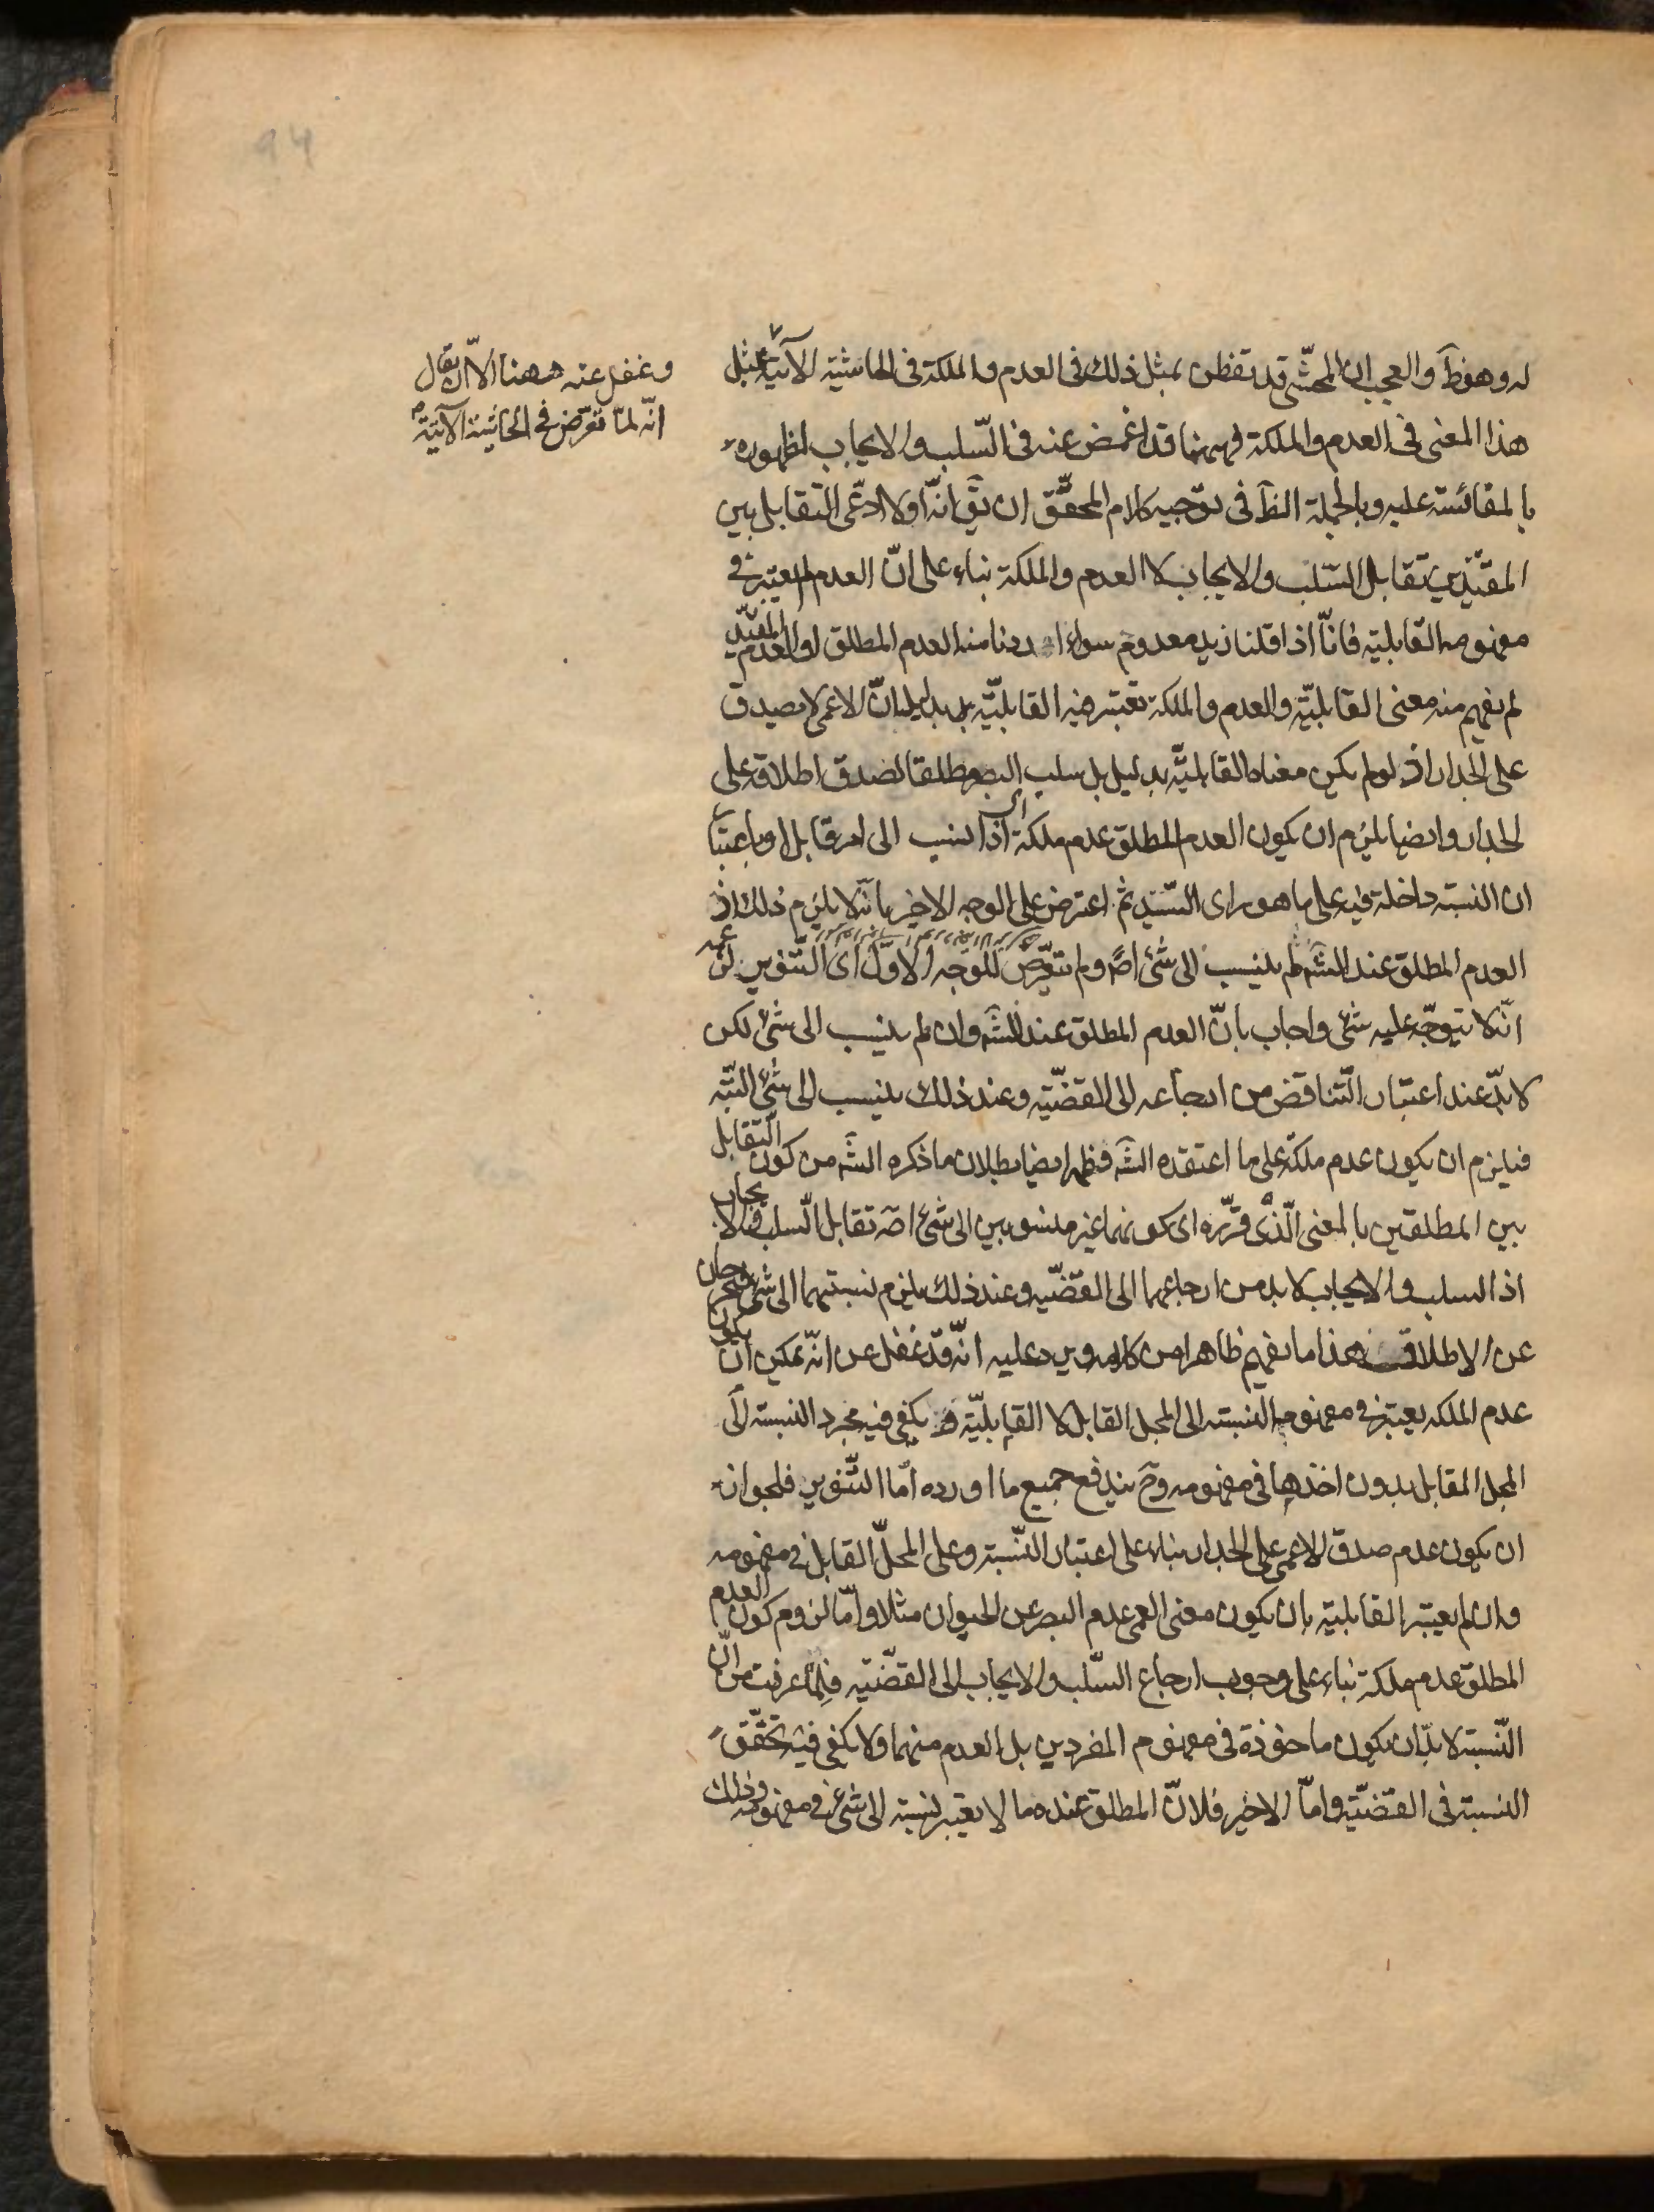 له وهو ظَ والعجب ان المحشّى قد تفطن بمثل ذلك فى العدم والملكة فى الحاشية الآتية لمثل
وغفل عنه ههنا الّا ان يقال
انّه لمّا تعرّض فى الحاشية الآتية
هذا المعنى فى العدم والملكة فههنا قد اغمض عنه فى السّلب والايجاب لظهوره
بالمقائسة عليه وبالجملة الظَ فى توجيه كلام المحقّق ان يقَ انّه اولا ادّعى التقابل بين
المقيّدين تقابل السّلب والايجاب لا العدم والملكة بناء على انّ العدم لم يعتبر فى
مفهومه القابلية فانّا اذا قلنا زيد معدوم سواء اردنا منه العدم المطلق او العدم المقيّد
لم يفهم منه معنى القابليّة والعدم والملكة تعتبر فيه القابليّة بدليل انّ الاعمى لا يصدق
على الجدار اذ لو لم يكن معناه القابليّة بدليل بل سلب البصر مطلقا لصدق اطلاقه على
الجدار وايضا يلزم ان يكون العدم المطلق عدم ملكة اذا انسب الى امر قابل او باعتبار
ان النسبة داخلة فيه على ما هو راى السّيّد ثم اعترض على الوجه الاخير بانّه لا يلزم ذلك اذ
العدم المطلق عند الشَه لم ينسب الى شئ اصَ ولم يتعرّض للوجه الاوّل اى التّنوير
انّه لا يتوجّه عليه شئ واجاب بانّ العدم المطلق عند الشَه وان لم ينسب الى شئ لكن
لا بدّ عند اعتبار التّناقض من ارجاعه الى القضيّة وعند ذلك ينسب الى شئ البتّه
فيلزم ان يكون عدم ملكة على ما اعتقده الشَه فظهر ايضا بطلان ما ذكره الشَه من كون التّقابل
بين المطلقين بالمعنى الّذى قرّره اى كونهما غير منسوبين الى شئ اصَ تقابل السّلب والايجاب
اذ السلب والايجاب لا بد من ارجاعهما الى القضيّه وعند ذلك يلزم نسبتهما الى شئ فيخرجان
عن الاطلاق هذا ما يفهم ظاهرا من كلامه ويرد عليه انّه قد غفل عن انّه يمكن ان يكون
عدم الملكه يعتبر فى مفهومه النسبة الى المحل القابل لا القابليّة يكفى فيه مجرد النسبة الى
المحل المقابل بدون اخذها فى مفهومه وحَ يندفع جميع ما اورده امّا التّنوير فلجواز
ان يكون عدم صدق الاعمى على الجدار بناء على اعتبار النّسبة وعلى المحلّ القابل فى مفهومه
وان لم يعتبر القابلية بان يكون معنى العمى عدم البصر عن الحيوان مثلا وامّا لزوم كون العدم
المطلق عدم ملكة بناء على وجوب ارجاع السّلب والايجاب الى القضيّة فلما عرفت من انّ
النّسبة لا بدّ ان يكون ماخوذة فى مفهوم المفردين بل العدم منهما ولا يكفى فيه تحقّق
النسبة فى القضيّة وامّا الاخير فلانّ المطلق عنده ما لا يعتبر نسبته الى شئ فى مفهومه وذلك